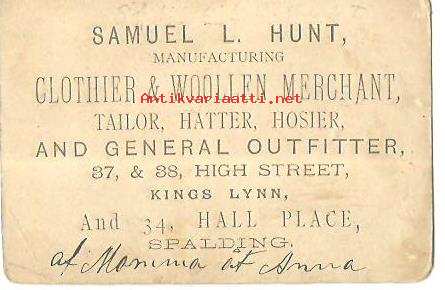 SAMUEL L. HUNT,
MANUFACTURING
CLOTHIER & WOOLLEN MERCHANT,
Antikvariaatti.net
TAILOR, HATTER, HOSIER,
AND GENERAL OUTFITTER,
37, & 38, HIGH STREET,
KINGS LYNN,
And 34, HALL PLACE,
SPALDING.
af Mamma at Anna